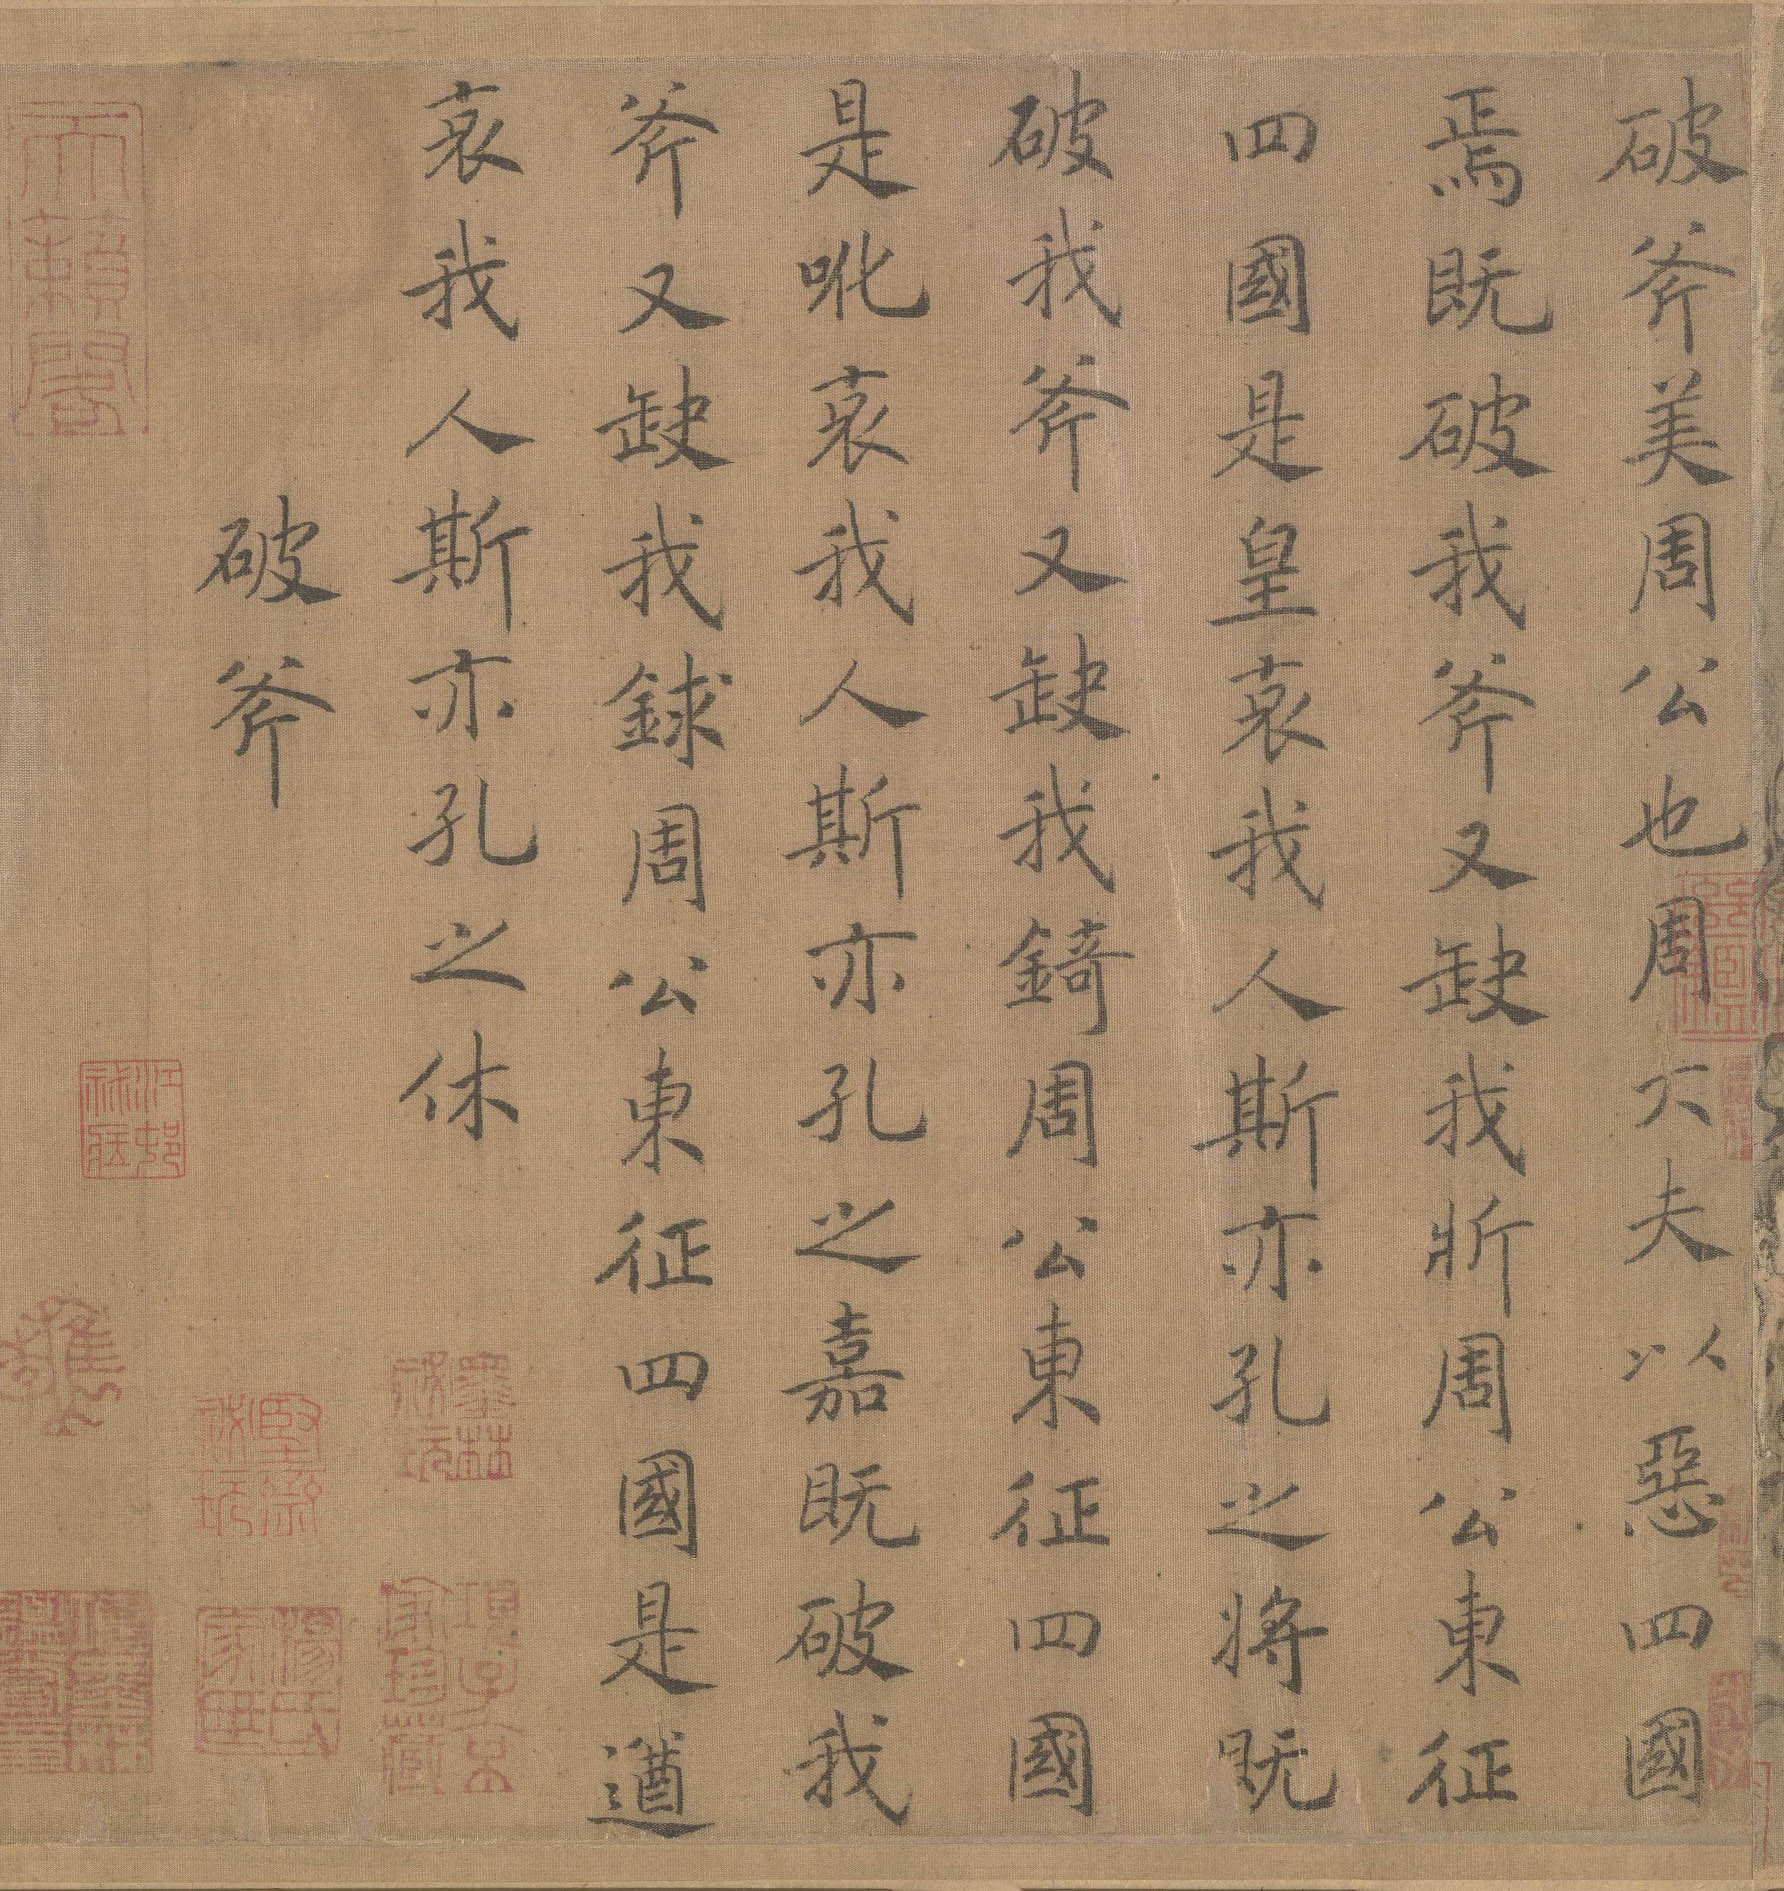 破斧美周公也周大夫以惡四國
焉既破我斧又缺我斨周公東征
四國是皇哀我人斯亦孔之將既
破我斧又缺我錡周公東征四國
是吪哀我人斯亦孔之嘉既破我
斧又缺我銶周公東征四國是遒
哀我人斯亦孔之休
破斧
天籟閣
項子京家珍藏
墨林秘玩